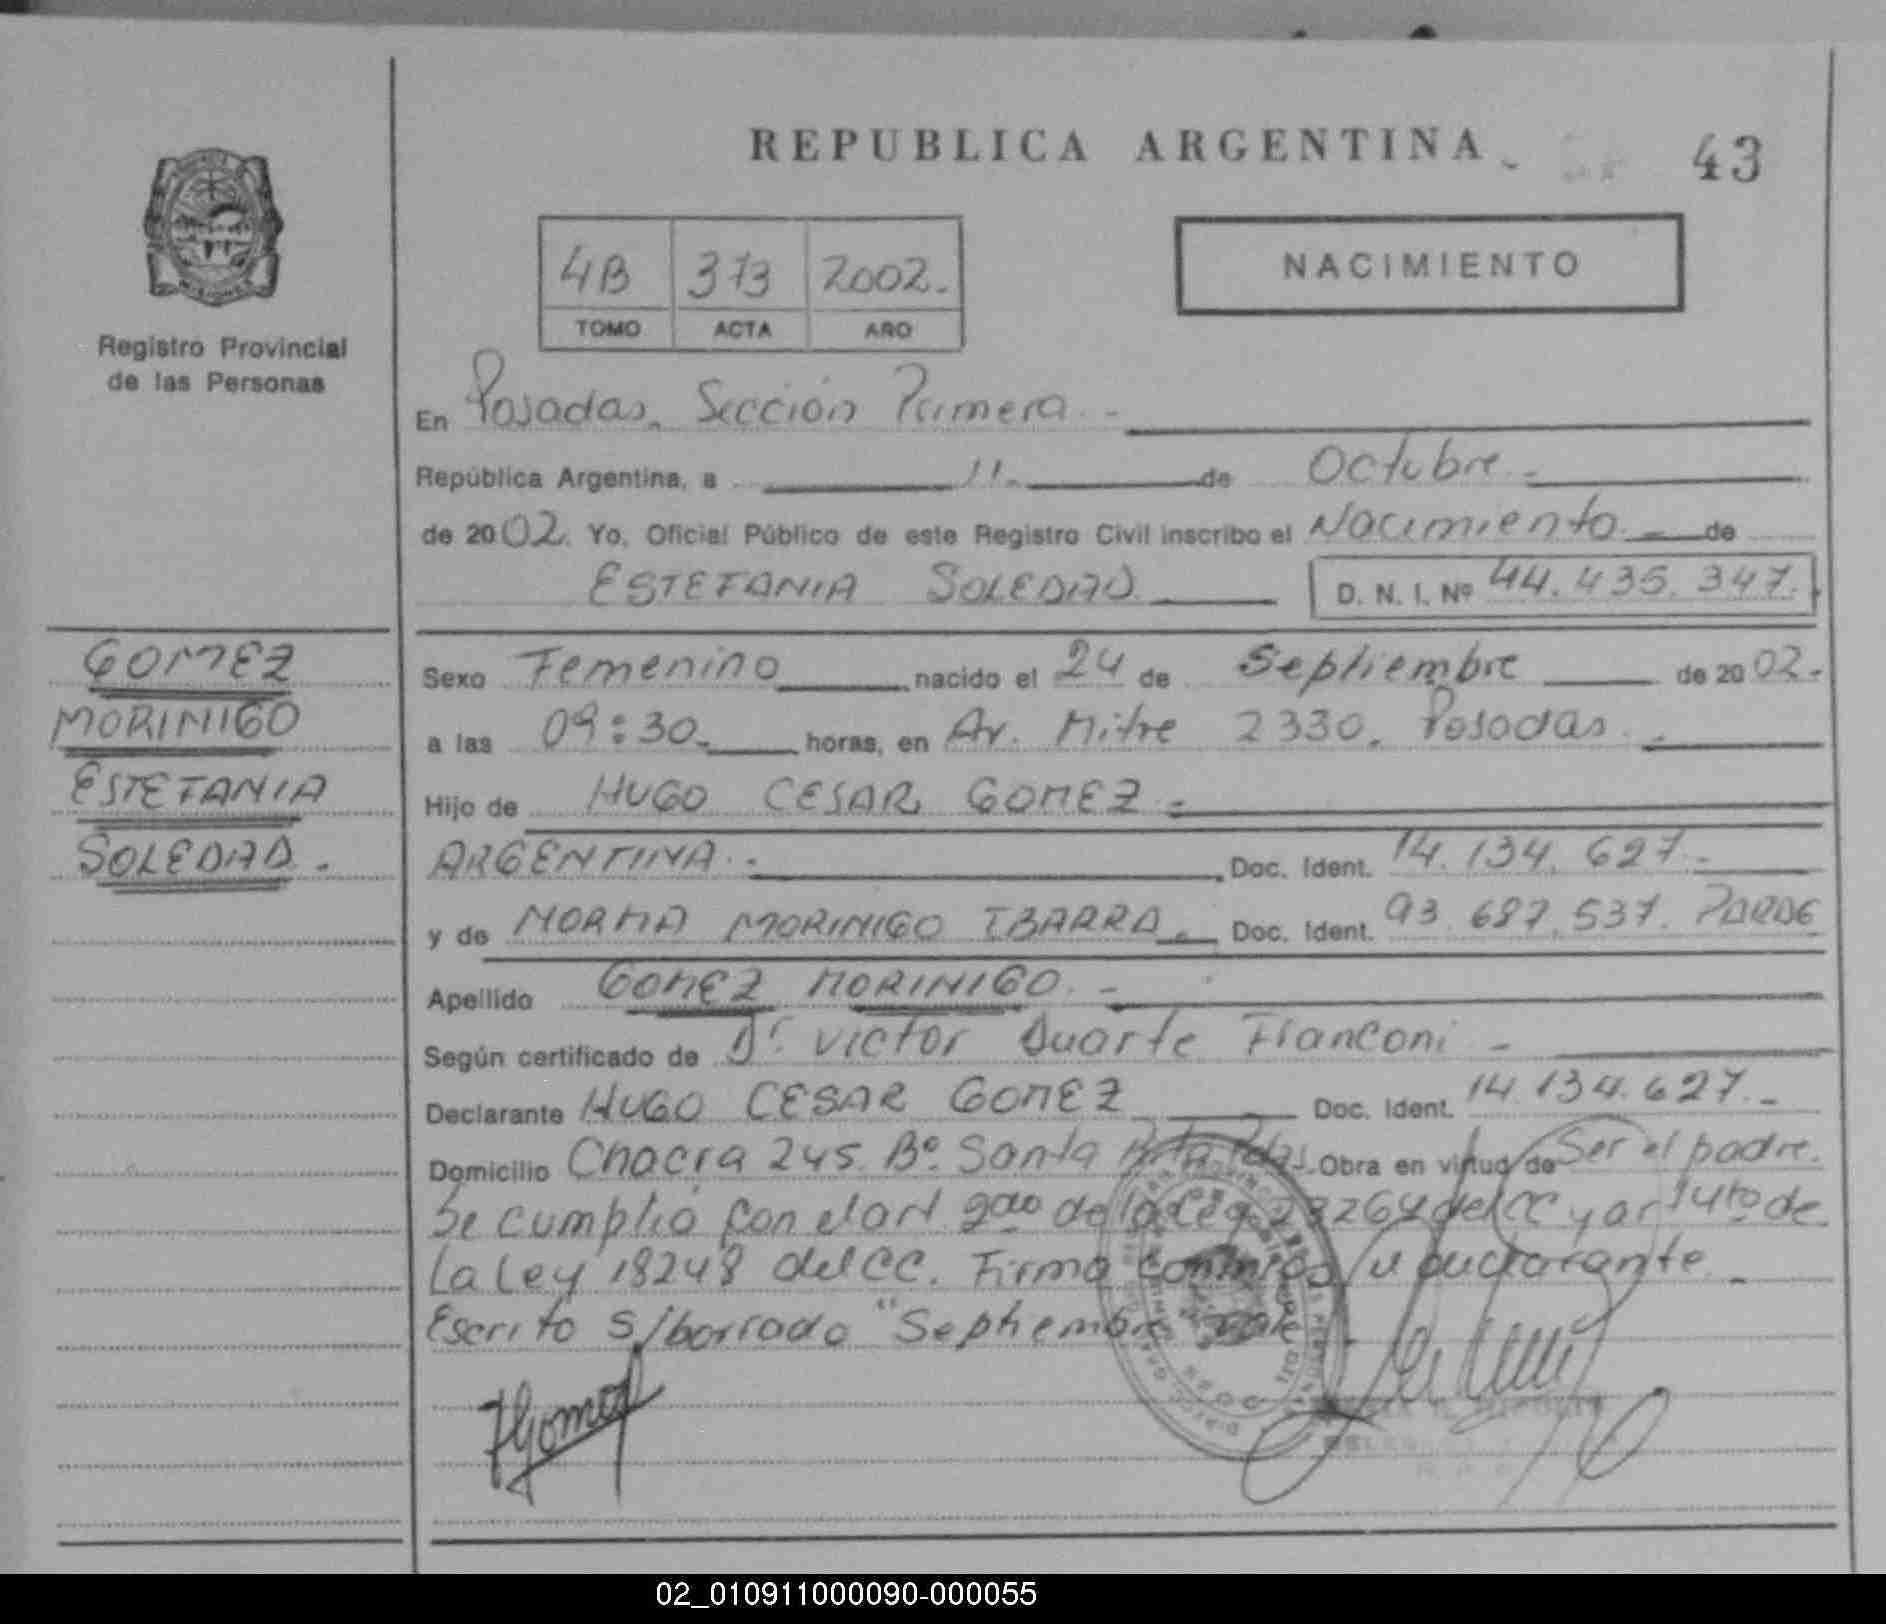 REPUBLICA ARGENTINA
43
4B 373 2002.
TOMO ACTA AÑO
NACIMIENTO
MISIONES
Registro Provincial
de las Personas
En Posadas. Sección Primera.-
República Argentina, a 11. de Octubre.-
de 2002. Yo, Oficial Público de este Registro Civil inscribo el Nacimiento.- de
ESTEFANIA SOLEDAD D. N. I. Nº 44.435.347.
GOMEZ
MORINIGO
ESTEFANIA
SOLEDAD.
Sexo Femenino nacido el 24 de Septiembre de 2002.-
a las 09:30.- horas, en Av. Mitre 2330. Posadas.-
Hijo de HUGO CESAR GOMEZ.-
ARGENTINA.- Doc. Ident. 14.134.627.-
y de NORMA MORINIGO IBARRA.- Doc. Ident. 93.687.537. PARAG
Apellido GOMEZ MORINIGO.-
Según certificado de Dr. Victor Duarte Franconi -
Declarante HUGO CESAR GOMEZ Doc. Ident. 14.134.627.-
Domicilio Chacra 245. Bº. Santa Rita Pdas. Obra en virtud de Ser el padre.
Se cumplió con el art 2do de la Ley 23264 del CC y art 4to de
La Ley 18248 del CC. Firma conmigo el declarante.-
Escrito s/borrado "Septiembre" Vale.-
HGomez
02_010911000090-000055